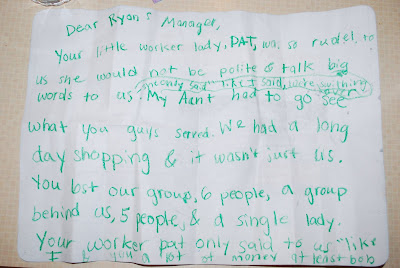 Dear Ryan's Manager,
Your little worker lady, PAT, was so rude, to
us she would not be polite & talk big
she only said "like I said, we're
words to us. My Aunt had to go see
what you guys served. We had a long
day shopping & it wasn't just us.
You lost our group, 6 people, a group
behind us, 5 people, & a single lady.
Your worker pat only said to us "like
I you a lot of money at least bob